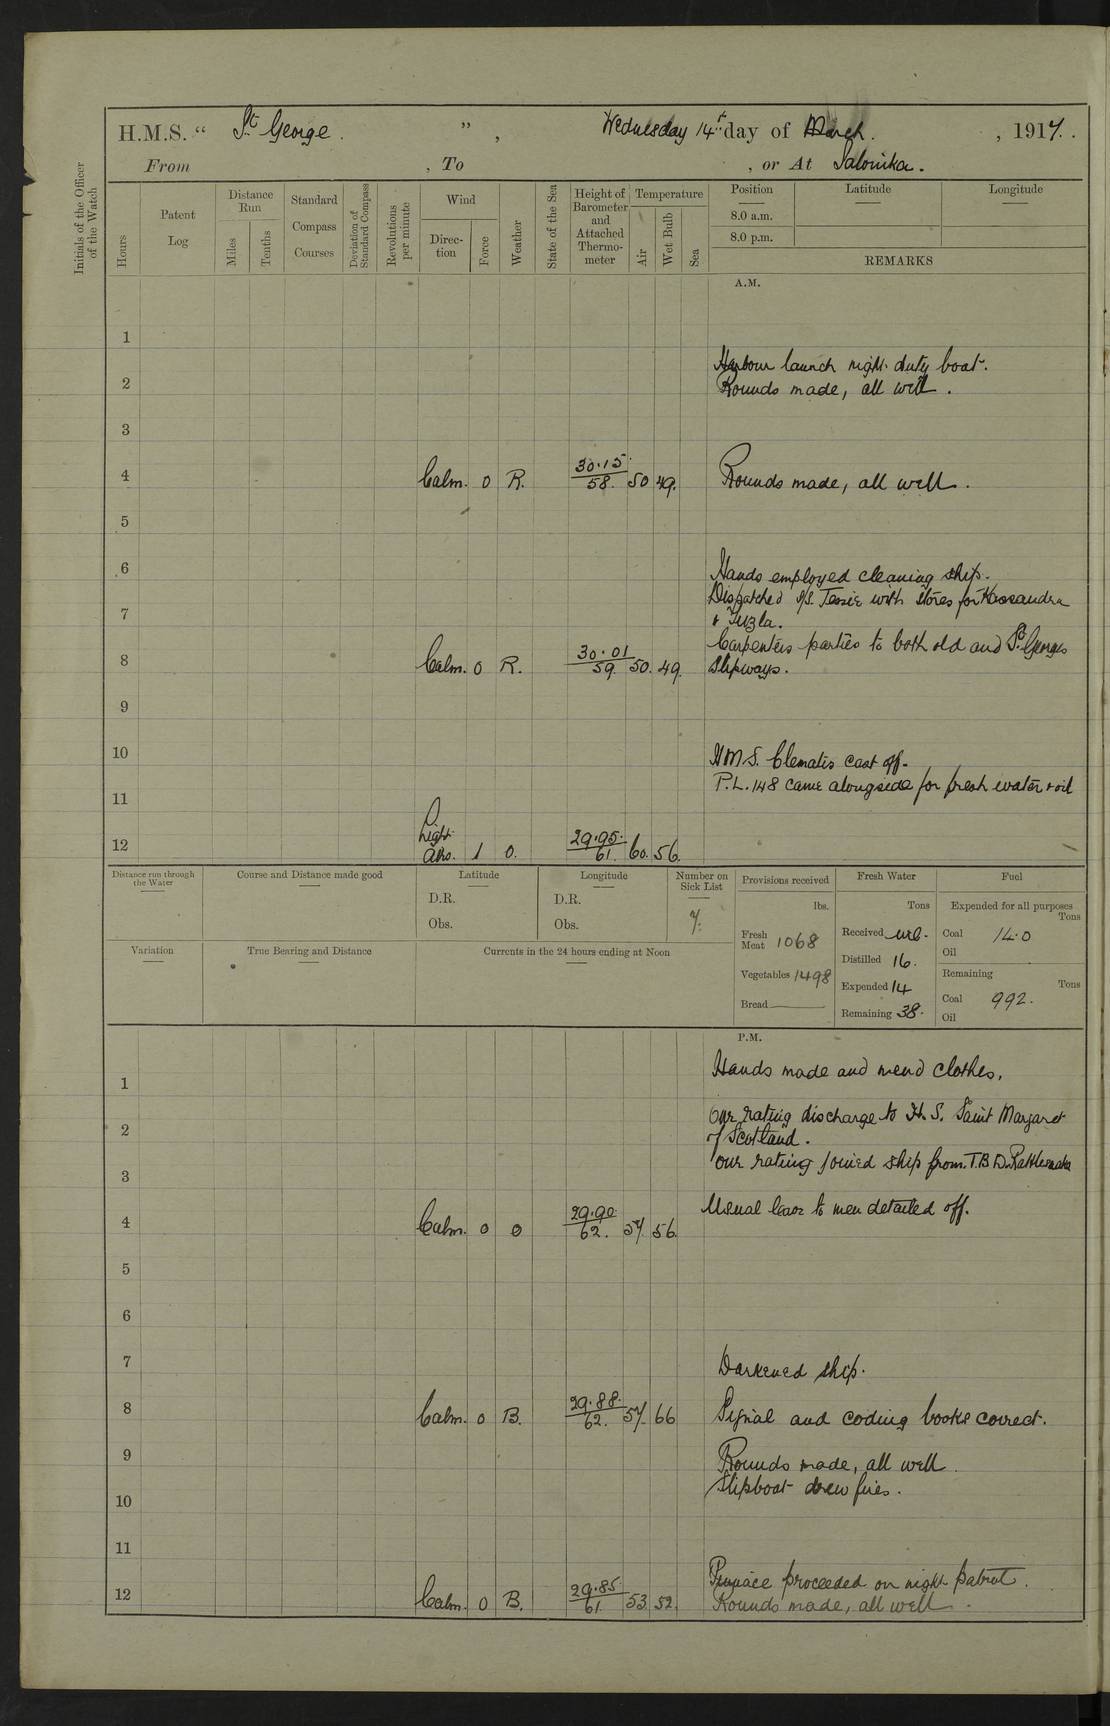 H.M.S. “ St George. ” , Wednesday 14th day of March. , 1917.
From , To , or At Salonika.
Initials of the Officer of the Watch
Hours
Patent Log
Distance Run
Miles
Tenths
Standard Compass Courses
Deviation of Standard Compass
Revolutions per minute
Wind
Direction
Force
Weather
State of the Sea
Height of Barometer and Attached Thermometer
Temperature
Air
Wet Bulb
Sea
Position
8.0 a.m.
8.0 p.m.
Latitude
Longitude
REMARKS
A.M.
1
Harbour launch night duty boat.
2 Rounds made, all well.
3
4 Calm. 0 R. 30.15 58. 50 49. Rounds made, all well.
5
6 Hands employed cleaning ship.
Dispatched S/S. Tessie with stores for Kassandra
7 & Tuzla.
Carpenters parties to both old and St. Georges
8 Calm. 0 R. 30.01 59. 50. 49. Slipways.
9
10 H M S. Clematis cast off.
P.L. 148 came alongside for fresh water & oil
11
12 Light airs. 1 0. 29.95. 61. 60. 56.
Distance run through the Water
Course and Distance made good
Latitude
D.R.
Obs.
Longitude
D.R.
Obs.
Number on Sick List
7.
Provisions received
lbs.
Fresh Meat 1068
Vegetables 1498
Bread
Fresh Water
Tons
Received
Distilled 16.
Expended 14
Remaining 38.
Fuel
Expended for all purposes
Tons
Coal 14.0
Oil
Remaining
Tons
Coal 992.
Oil
Variation
True Bearing and Distance
Currents in the 24 hours ending at Noon
P.M.
Hands made and mend clothes.
1
One rating discharge to H. S. Saint Margaret
2 of Scotland.
One rating joined ship from T.B.D. Rattlesnake
3
Usual leave to men detailed off.
4 Calm. 0 0 29.90 62. 57. 56.
5
6
7 Darkened ship.
8 Calm. 0 B. 29.88. 62. 57. 66 Signal and coding books correct.
9 Rounds made, all well.
Slipboat drew fires.
10
11
Pinnace proceeded on night patrol.
12 Calm. 0 B. 29.85 61. 53. 52. Rounds made, all well.